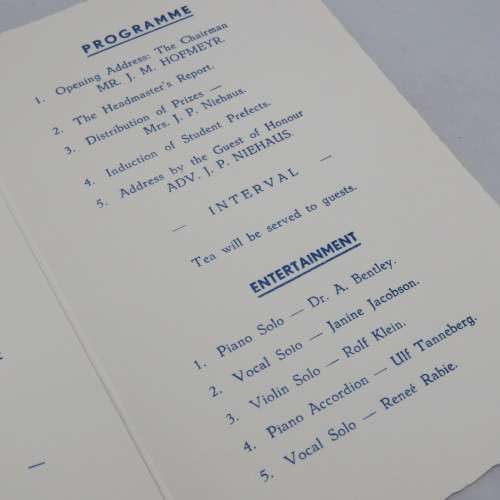 PROGRAMME
1. Opening Address: The Chairman
MR. J. M. HOFMEYR.
2. The Headmaster's Report.
3. Distribution of Prizes —
Mrs. J. P. Niehaus.
4. Induction of Student Prefects.
5. Address by the Guest of Honour
ADV. J. P. NIEHAUS.
— INTERVAL —
Tea will be served to guests.
ENTERTAINMENT
1. Piano Solo — Dr. A. Bentley.
2. Vocal Solo — Janine Jacobson.
3. Violin Solo — Rolf Klein.
4. Piano Accordion — Ulf Tanneberg.
5. Vocal Solo — Reneé Rabie.